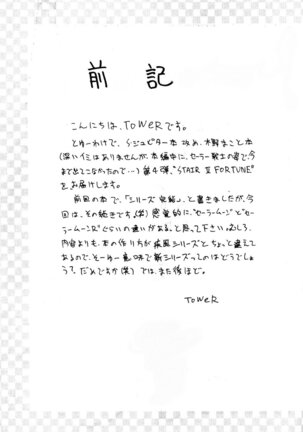 前記
こんにちは、ToWeRです。
とゆーわけで、ジュピター本攻め、木野まこと本
(深いイミはありませんが、本編中に、セーラー戦士の姿で、今
まで出てこなかったので…)第4弾、"STAIR Ⅲ FORTUNE"
をお届けします。
前回の本で、「シリーズ完結」、と書きましたが、今
回は、その続きです。(笑)感覚的に、"セーラームーン"と"セ
ーラームーンR"ぐらいの違いがある、と思って下さい。むしろ、
内容よりも、本の作り方が シリーズとちょっと違えて
あるので、そーゆー意味で新シリーズってのはどうでしょ
う?だめですか(笑)では、また後ほど。
ToWeR